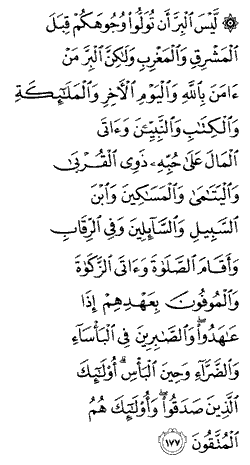 ۞ لَّيْسَ ٱلْبِرَّ أَن تُوَلُّوا۟ وُجُوهَكُمْ قِبَلَ
ٱلْمَشْرِقِ وَٱلْمَغْرِبِ وَلَـٰكِنَّ ٱلْبِرَّ مَنْ
ءَامَنَ بِٱللَّهِ وَٱلْيَوْمِ ٱلْـَٔاخِرِ وَٱلْمَلَـٰٓئِكَةِ
وَٱلْكِتَـٰبِ وَٱلنَّبِيِّـۧنَ وَءَاتَى
ٱلْمَالَ عَلَىٰ حُبِّهِۦ ذَوِى ٱلْقُرْبَىٰ
وَٱلْيَتَـٰمَىٰ وَٱلْمَسَـٰكِينَ وَٱبْنَ
ٱلسَّبِيلِ وَٱلسَّآئِلِينَ وَفِى ٱلرِّقَابِ
وَأَقَامَ ٱلصَّلَوٰةَ وَءَاتَى ٱلزَّكَوٰةَ
وَٱلْمُوفُونَ بِعَهْدِهِمْ إِذَا
عَـٰهَدُوا۟ ۖ وَٱلصَّـٰبِرِينَ فِى ٱلْبَأْسَآءِ
وَٱلضَّرَّآءِ وَحِينَ ٱلْبَأْسِ ۗ أُو۟لَـٰٓئِكَ
ٱلَّذِينَ صَدَقُوا۟ ۖ وَأُو۟لَـٰٓئِكَ هُمُ
ٱلْمُتَّقُونَ ١٧٧